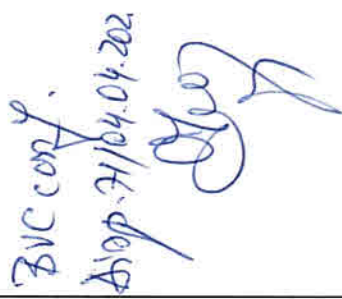 BVC conf.
Disp. 71/04.04.202